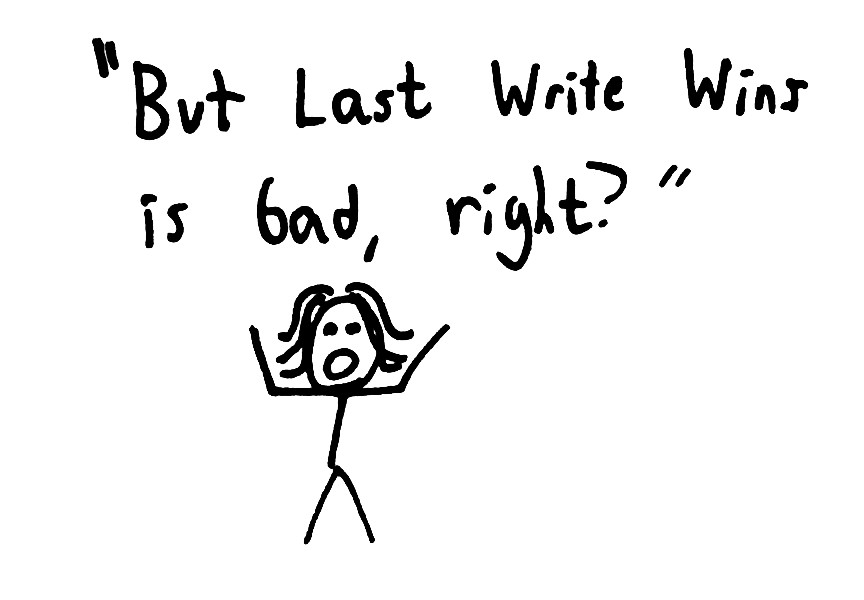 "But Last Write Wins
is bad, right?"